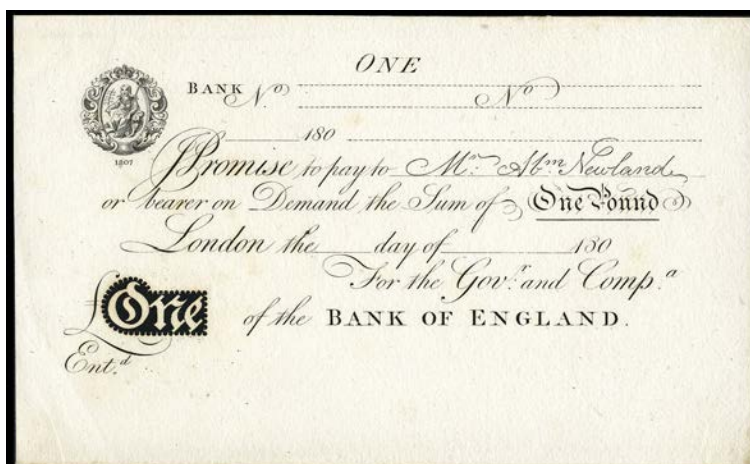 ONE
BANK Nº Nº
180
1807
I Promise to pay to Mr. Abm Newland
or bearer on Demand the Sum of One Pound
London the day of 180
For the Govr. and Compa.
£One of the BANK OF ENGLAND.
Entd.